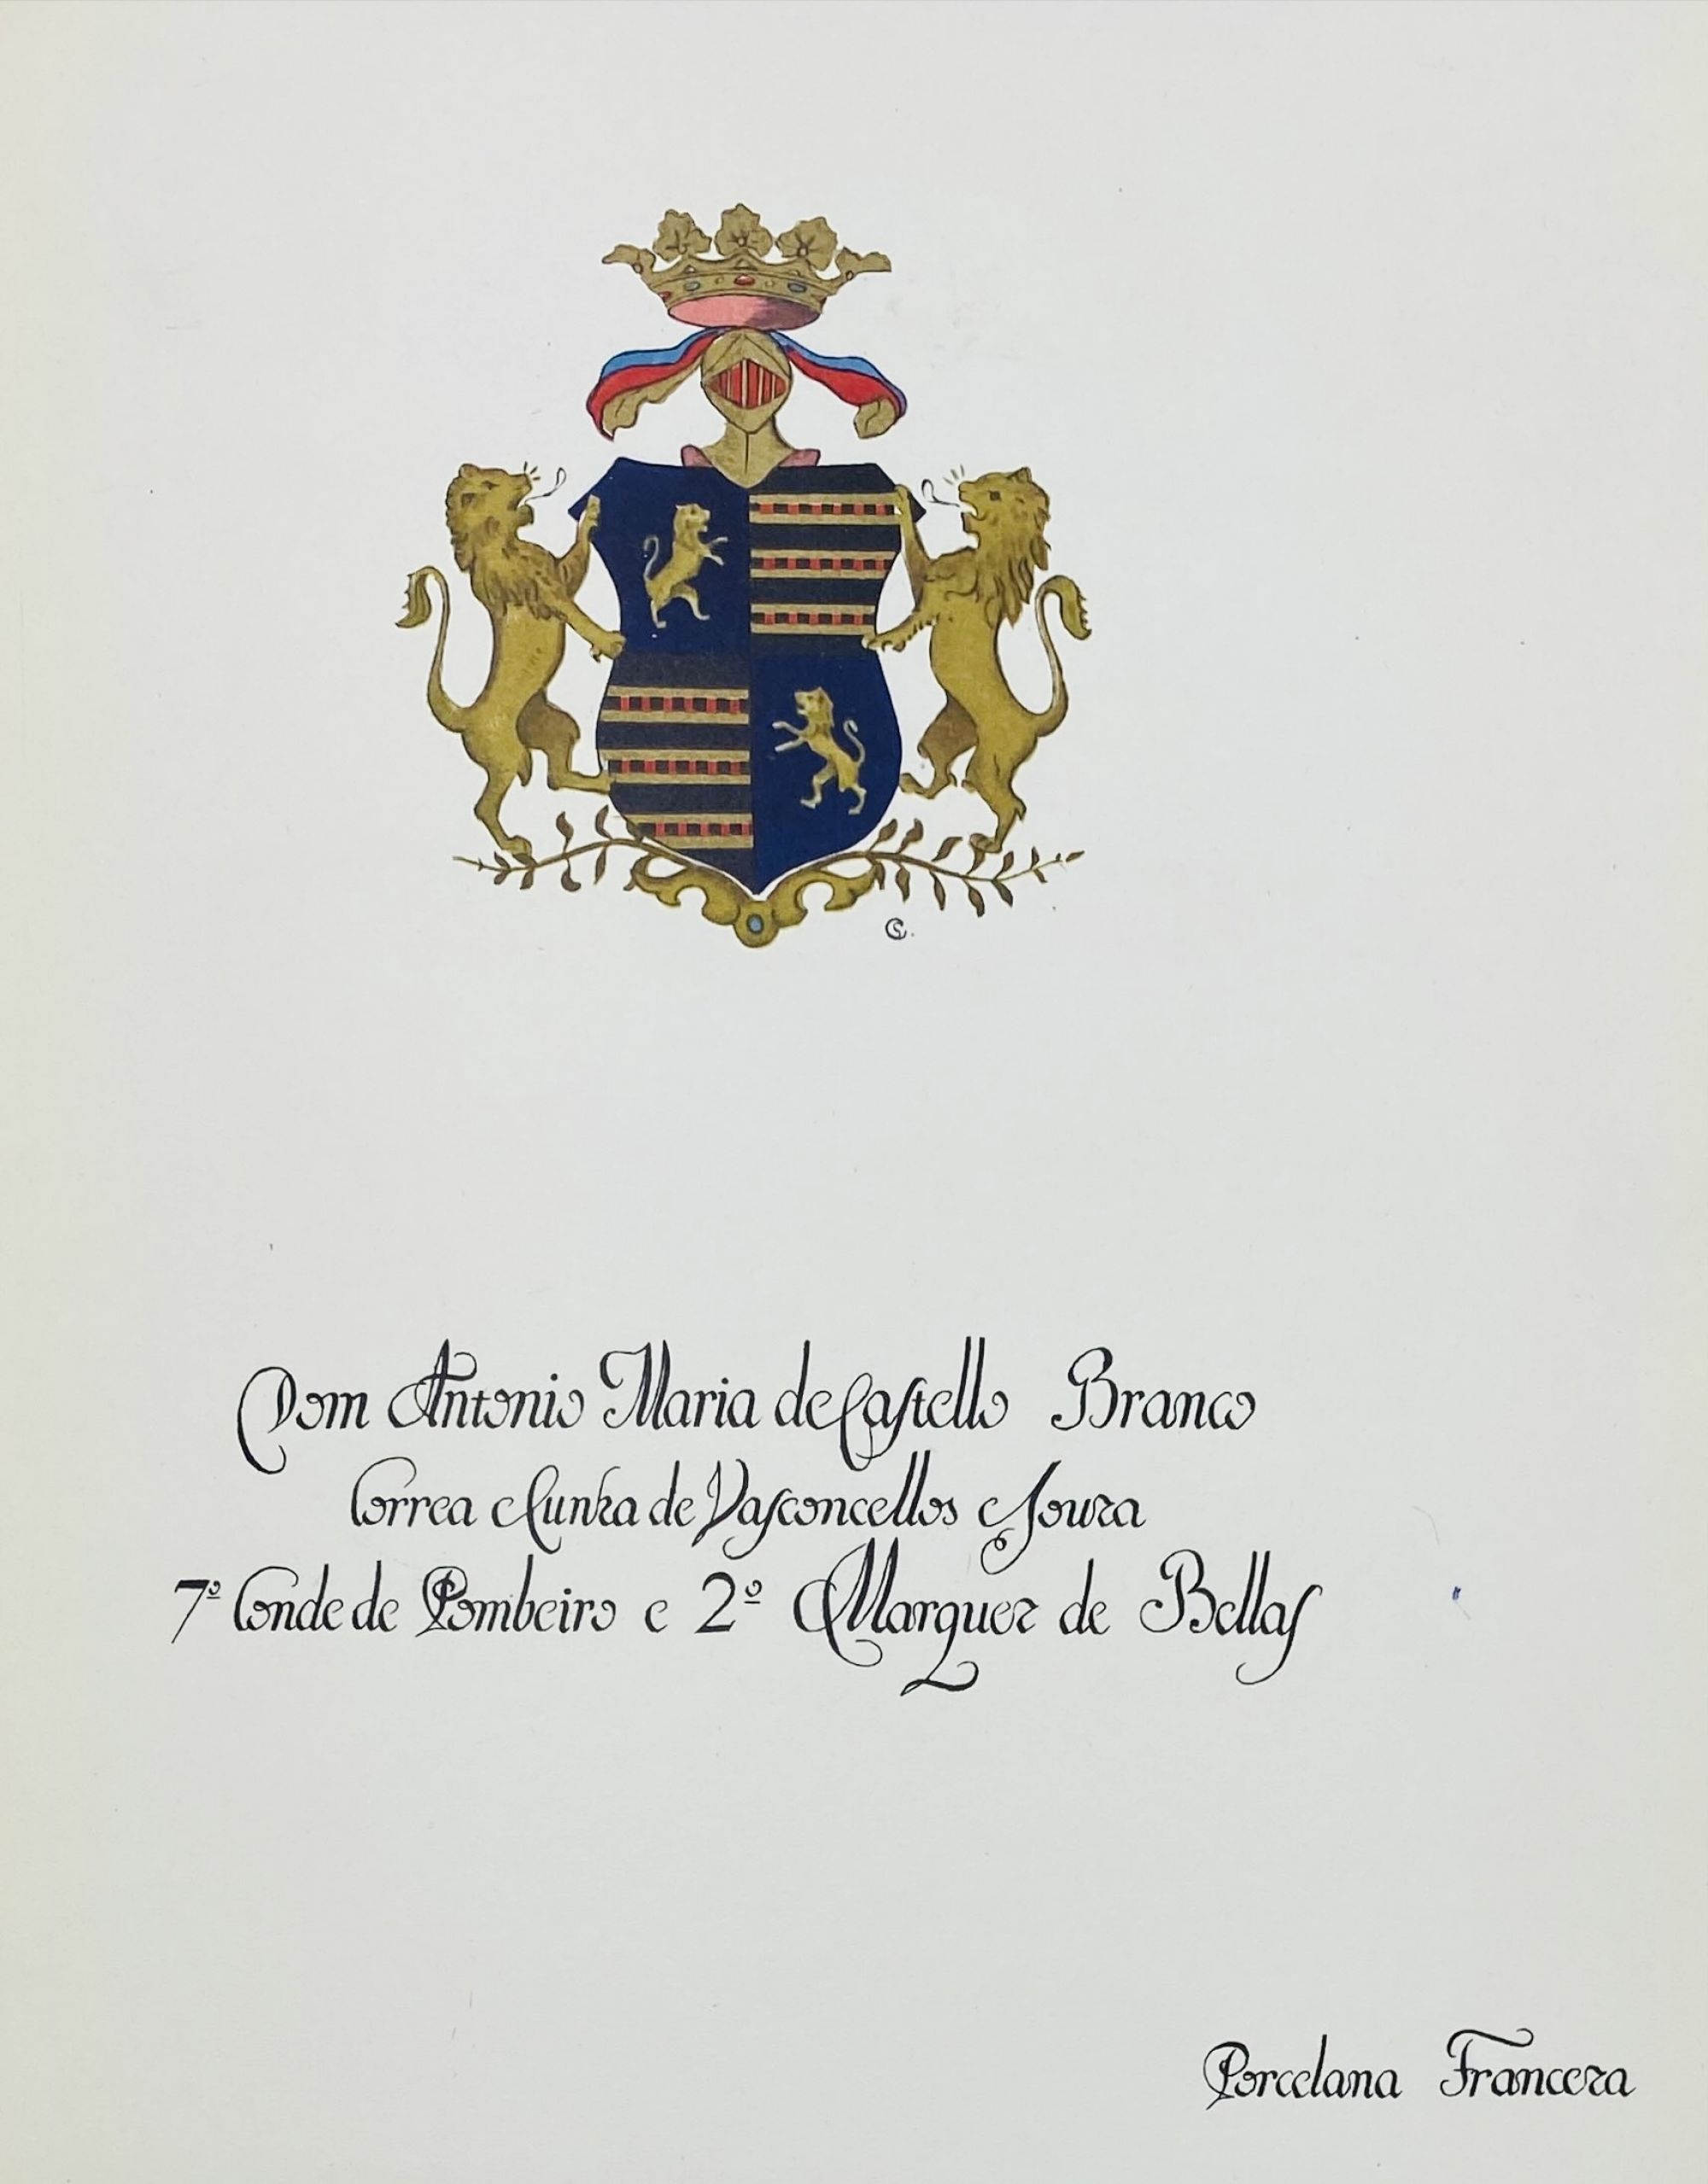 Dom Antonio Maria de Castello Branco
Correa e Cunha de Vasconcellos e Souza
7º Conde de Pombeiro e 2º Marquez de Bellas
Porcelana Franceza